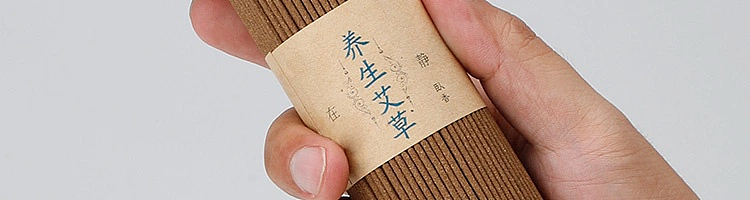 养生艾草
静
卧香
在